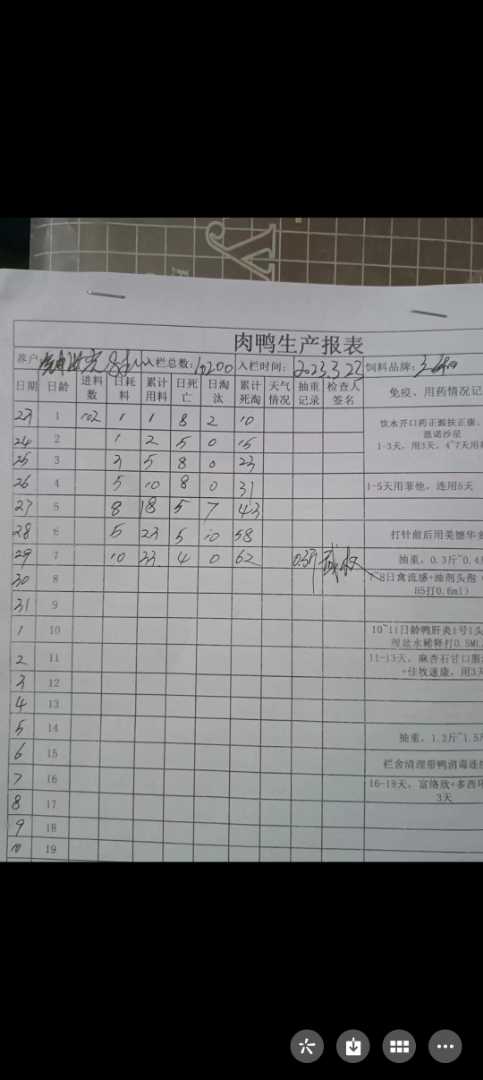 肉鸭生产报表
养户 入栏总数: 10200 入栏时间: 2023.3.23 饲料品牌:
日期 日龄 进料数 日耗料 累计用料 日死亡 日淘汰 累计死淘 天气情况 抽重记录 检查人签名 免疫、用药情况记
23 1 102 1 1 8 2 10 饮水开口药正源扶正康、
恩诺沙星
1-3天，用3天，4~7天用
24 2 1 2 5 0 15
25 3 3 5 8 0 23
26 4 5 10 8 0 31 1-5天用 连用5天
27 5 8 18 5 7 43
28 6 5 23 5 10 58 打针前后用美德华
29 7 10 33 4 0 62 0.3斤 抽重，0.3斤~0.4
30 8 7-8日禽流感+油剂头孢
H5打0.6ml）
31 9
1 10 10~11日龄鸭肝炎1号1头
盐水稀释打0.5ML
2 11 11-13天，麻杏石甘口服
+佳牧速康，用3
3 12
4 13
5 14 抽重，1.2斤~1.5
6 15 栏舍清理带鸭消毒连
7 16 16-18天，富络欣+多西
3天
8 17
9 18
10 19